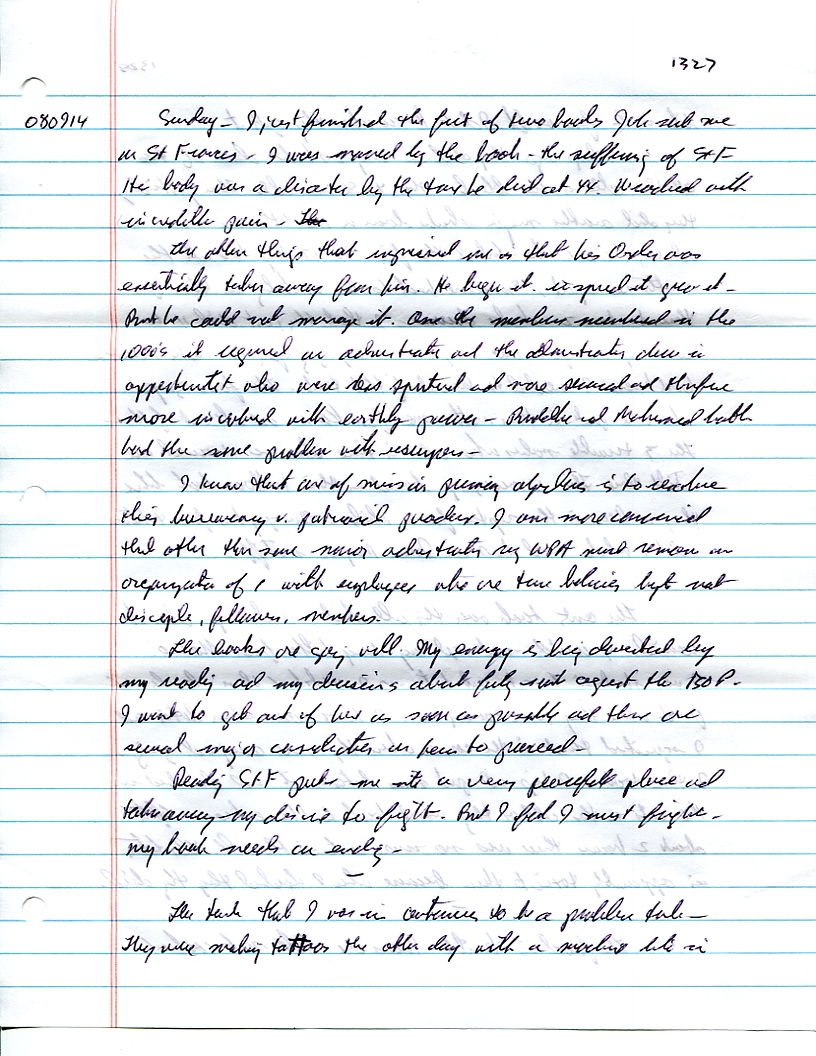 1327
080914 Sunday - I just finished the first of two books Joh sent me
on St Francis. I was moved by the book - the suffering of St F
His body was a disaster by the time he died at 44. Wracked with
incredible pain -
The other things that impressed me is that his Order was
essentially taken away from him. He began it. inspired it grew it -
But he could not manage it. Once the members numbered in the
1000's it required an administrator and the administrator drew in
opportunist who were less spiritual and more secular and therefore
more involved with earthly power - Buddha and Mohammed both
had the same problem with usurpers -
I know that one of my primary objectives is to resolve
this bureaucracy v. product. I am more convinced
that other than some minor administrators my WPA must remain an
organization of 1 with employees who are true believers but not
disciple, followers, members.
The books are going well. My energy is being diverted by
my reading and my decisions about suit against the BOP.
I want to get out of here as soon as possible and there are
several major considerations on how to proceed -
Reading St F puts me into a very peaceful place and
takes away my desire to fight. But I feel I must fight -
my book needs an ending -
The tank that I was in continues to be a problem tank -
They were making tattoos the other day with a machine like in